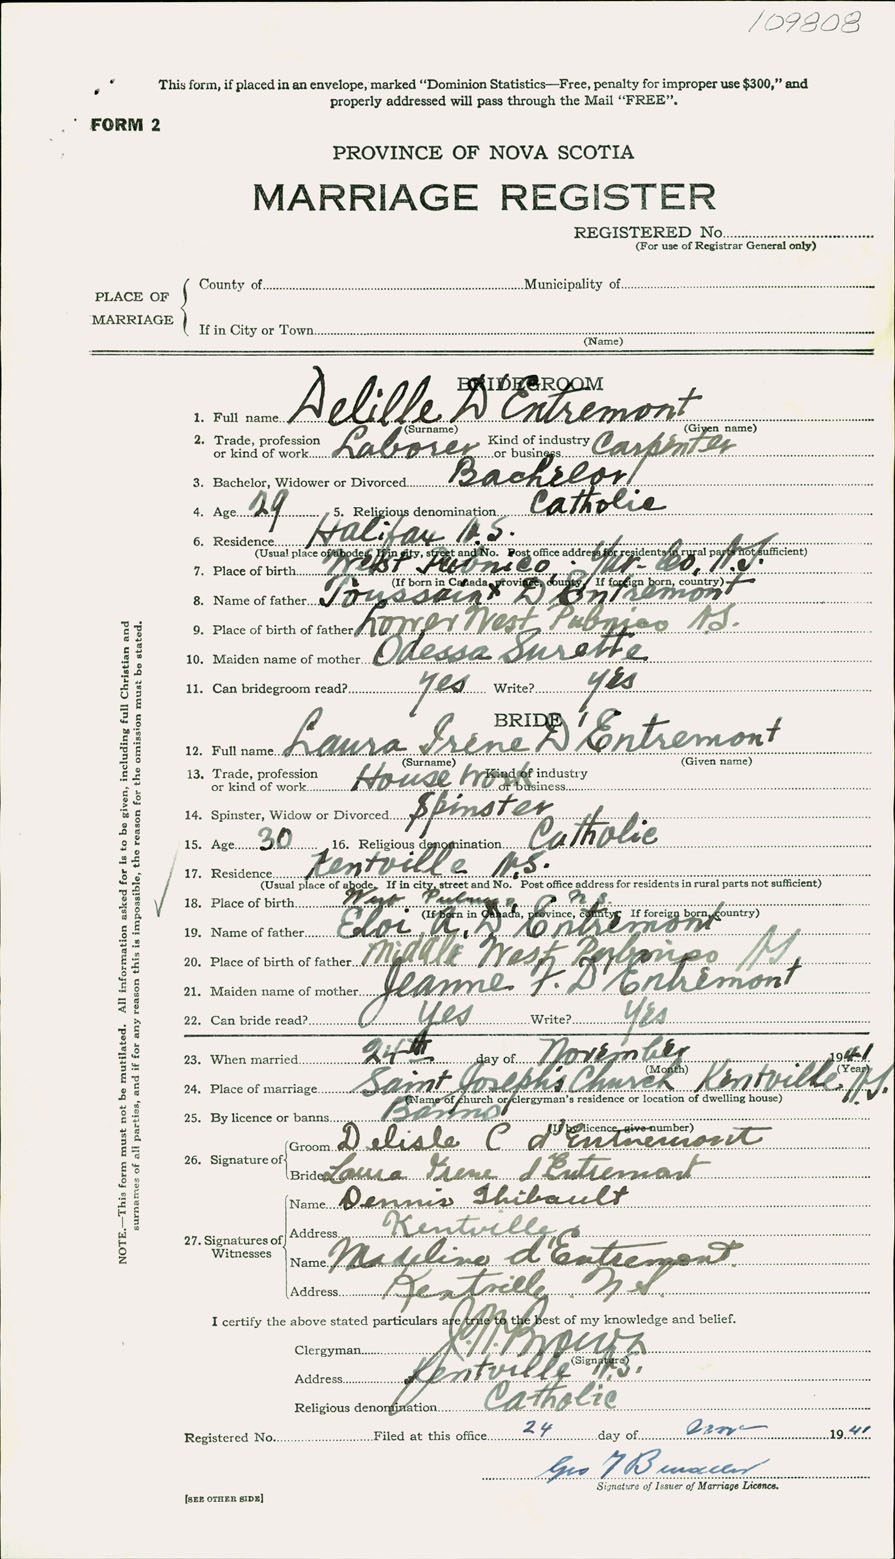 109808
This form, if placed in an envelope, marked “Dominion Statistics—Free, penalty for improper use $300,” and
properly addressed will pass through the Mail “FREE”.
FORM 2
PROVINCE OF NOVA SCOTIA
MARRIAGE REGISTER
REGISTERED No.
(For use of Registrar General only)
PLACE OF MARRIAGE
County of Municipality of
If in City or Town
(Name)
BRIDEGROOM
1. Full name Delille D'Entremont
(Surname) (Given name)
2. Trade, profession or kind of work Laborer Kind of industry or business Carpenter
3. Bachelor, Widower or Divorced Bachelor
4. Age 29 5. Religious denomination Catholic
6. Residence Halifax N.S.
(Usual place of abode. If in city, street and No. Post office address for residents in rural parts not sufficient)
7. Place of birth West Pubnico Yar. Co, N.S.
(If born in Canada, province, county. If foreign born, country)
8. Name of father Toussaint D'Entremont
9. Place of birth of father Lower West Pubnico N.S.
10. Maiden name of mother Odessa Surette
11. Can bridegroom read? yes Write? yes
BRIDE
12. Full name Laura Irene D'Entremont
(Surname) (Given name)
13. Trade, profession or kind of work House Work Kind of industry or business
14. Spinster, Widow or Divorced Spinster
15. Age 30 16. Religious denomination Catholic
17. Residence Kentville N.S.
(Usual place of abode. If in city, street and No. Post office address for residents in rural parts not sufficient)
18. Place of birth West Pubnico N.S.
(If born in Canada, province, county. If foreign born, country)
19. Name of father Eloi A. D'Entremont
20. Place of birth of father Middle West Pubnico NS
21. Maiden name of mother Jeanne F. D'Entremont
22. Can bride read? yes Write? Yes
23. When married 24th day of November 1941
(Month) (Year)
24. Place of marriage Saint Joseph's Church Kentville N.S.
(Name of church or clergyman's residence or location of dwelling house)
25. By licence or banns Banns
(If by licence, give number)
26. Signature of Groom Delisle C d'Entremont
Bride Laura Irene d'Entremont
27. Signatures of Witnesses
Name Dennis Thibault
Address Kentville
Name Madeline d'Entremont
Address Kentville N.S.
I certify the above stated particulars are true to the best of my knowledge and belief.
Clergyman Brown
(Signature)
Address Kentville N.S.
Religious denomination Catholic
Registered No. Filed at this office 24 day of Nov 1941
Geo
Signature of Issuer of Marriage Licence.
[SEE OTHER SIDE]
NOTE.—This form must not be mutilated. All information asked for is to be given, including full Christian and
surnames of all parties, and if for any reason this is impossible, the reason for the omission must be stated.